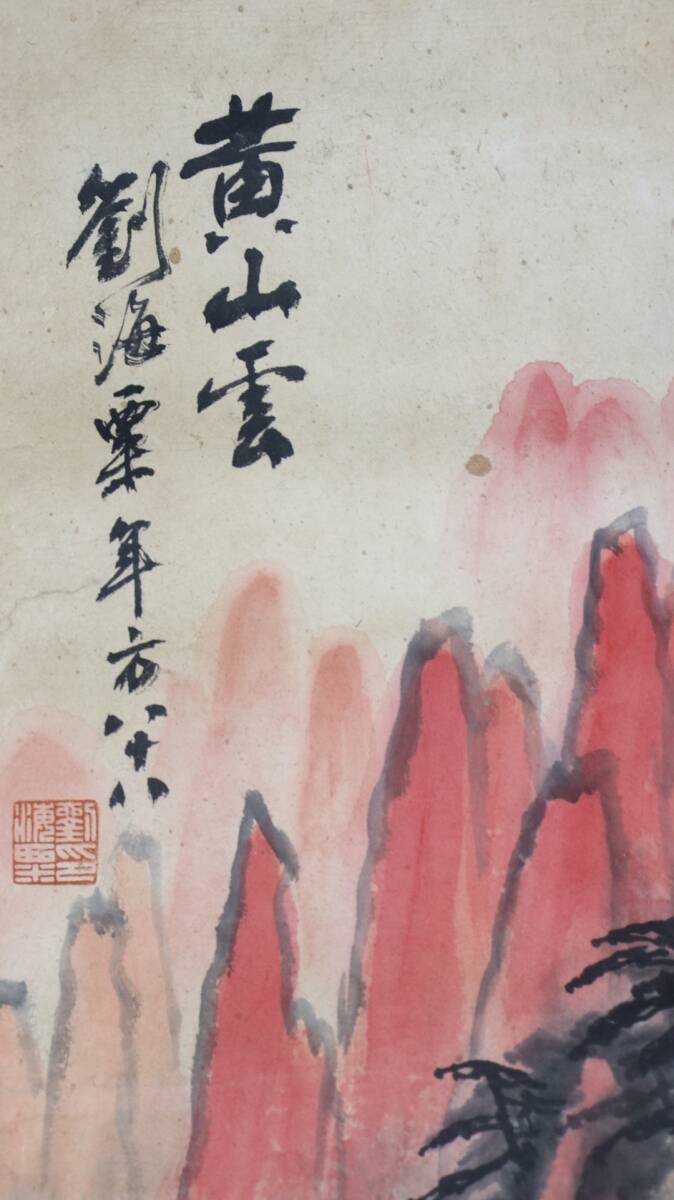 黄山雲
劉海粟年方八十八
劉海粟印